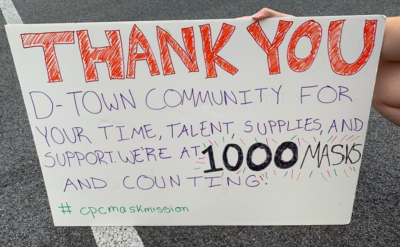 THANK YOU
D-TOWN COMMUNITY FOR
YOUR TIME, TALENT, SUPPLIES, AND
SUPPORT. WE'RE AT 1000 MASKS
AND COUNTING!
# cpcmaskmission